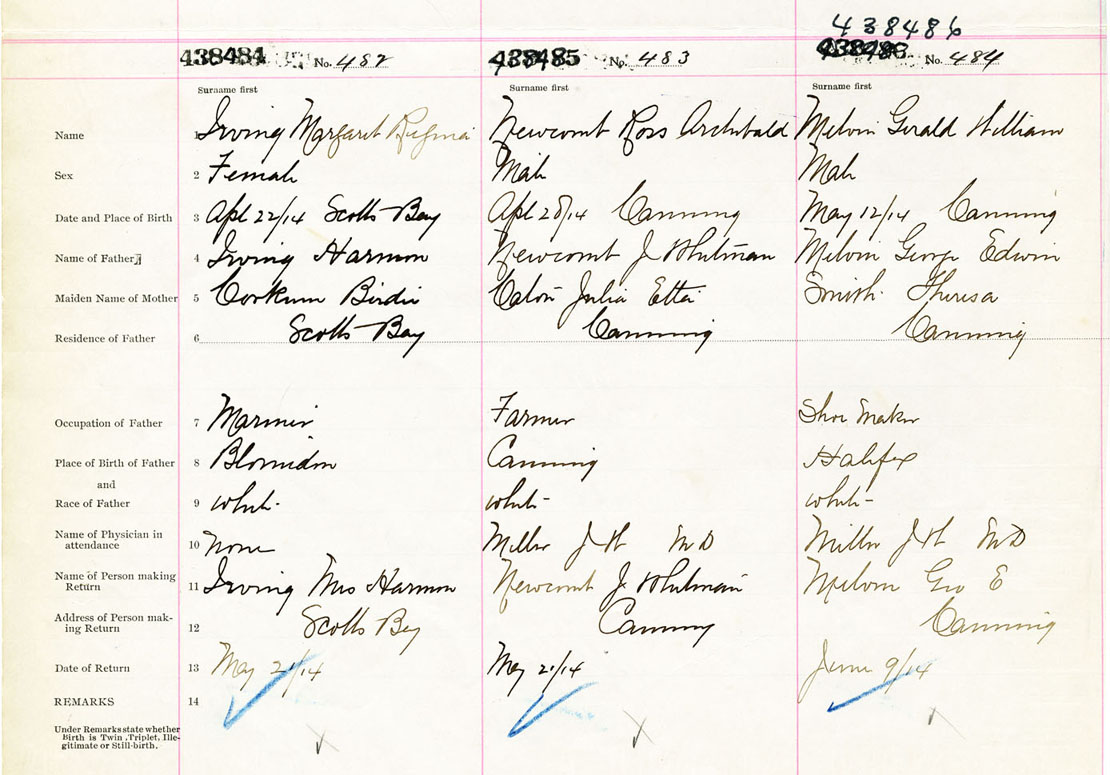 438486
438484 No. 482 438485 No. 483 No. 484
Surname first Surname first Surname first
Name 1 Irving Margaret Newcomb Ross Archibald Melvin Gerald William
Sex 2 Female Male Male
Date and Place of Birth 3 Apl 22/14 Scotts Bay Apl 28/14 Canning May 12/14 Canning
Name of Father 4 Irving Harmon Newcomb J Whitman Melvin George Edwin
Maiden Name of Mother 5 Corkum Birdie Eaton Julia Etta Smith Theresa
Residence of Father 6 Scotts Bay Canning Canning
Occupation of Father 7 Mariner Farmer Shoe Maker
Place of Birth of Father 8 Blomidon Canning Halifax
and
Race of Father 9 white white white
Name of Physician in
attendance 10 none Miller J H M D Miller J H M D
Name of Person making
Return 11 Irving Mrs Harmon Newcomb J Whitman Melvin Geo E
Address of Person mak-
ing Return 12 Scotts Bay Canning Canning
Date of Return 13 May 21/14 May 21/14 June 9/14
REMARKS 14
Under Remarks state whether
Birth is Twin, Triplet, Ille-
gitimate or Still-birth.